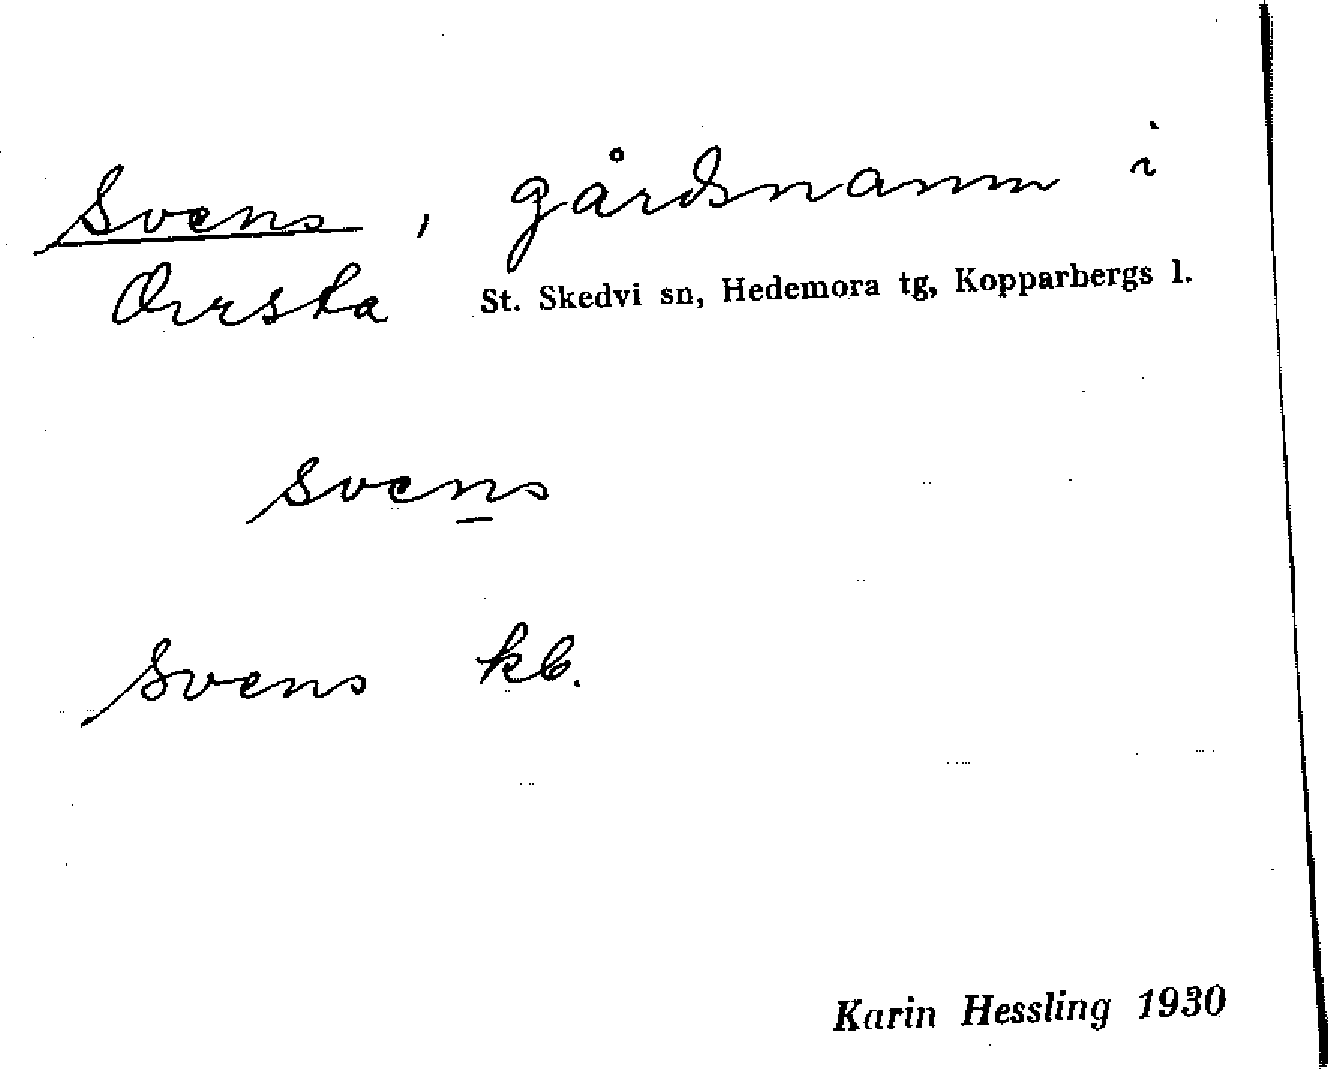 Svens, gårdsnamn i
Orrsta St. Skedvi sn, Hedemora tg, Kopparbergs l.
svens
Svens kb.
Karin Hessling 1930